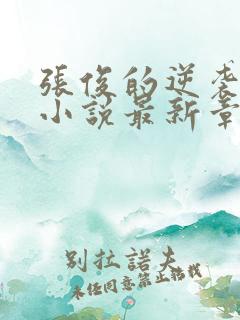 張俊的逆袭
小說最新章
別拉諾夫
未经同意禁止转载